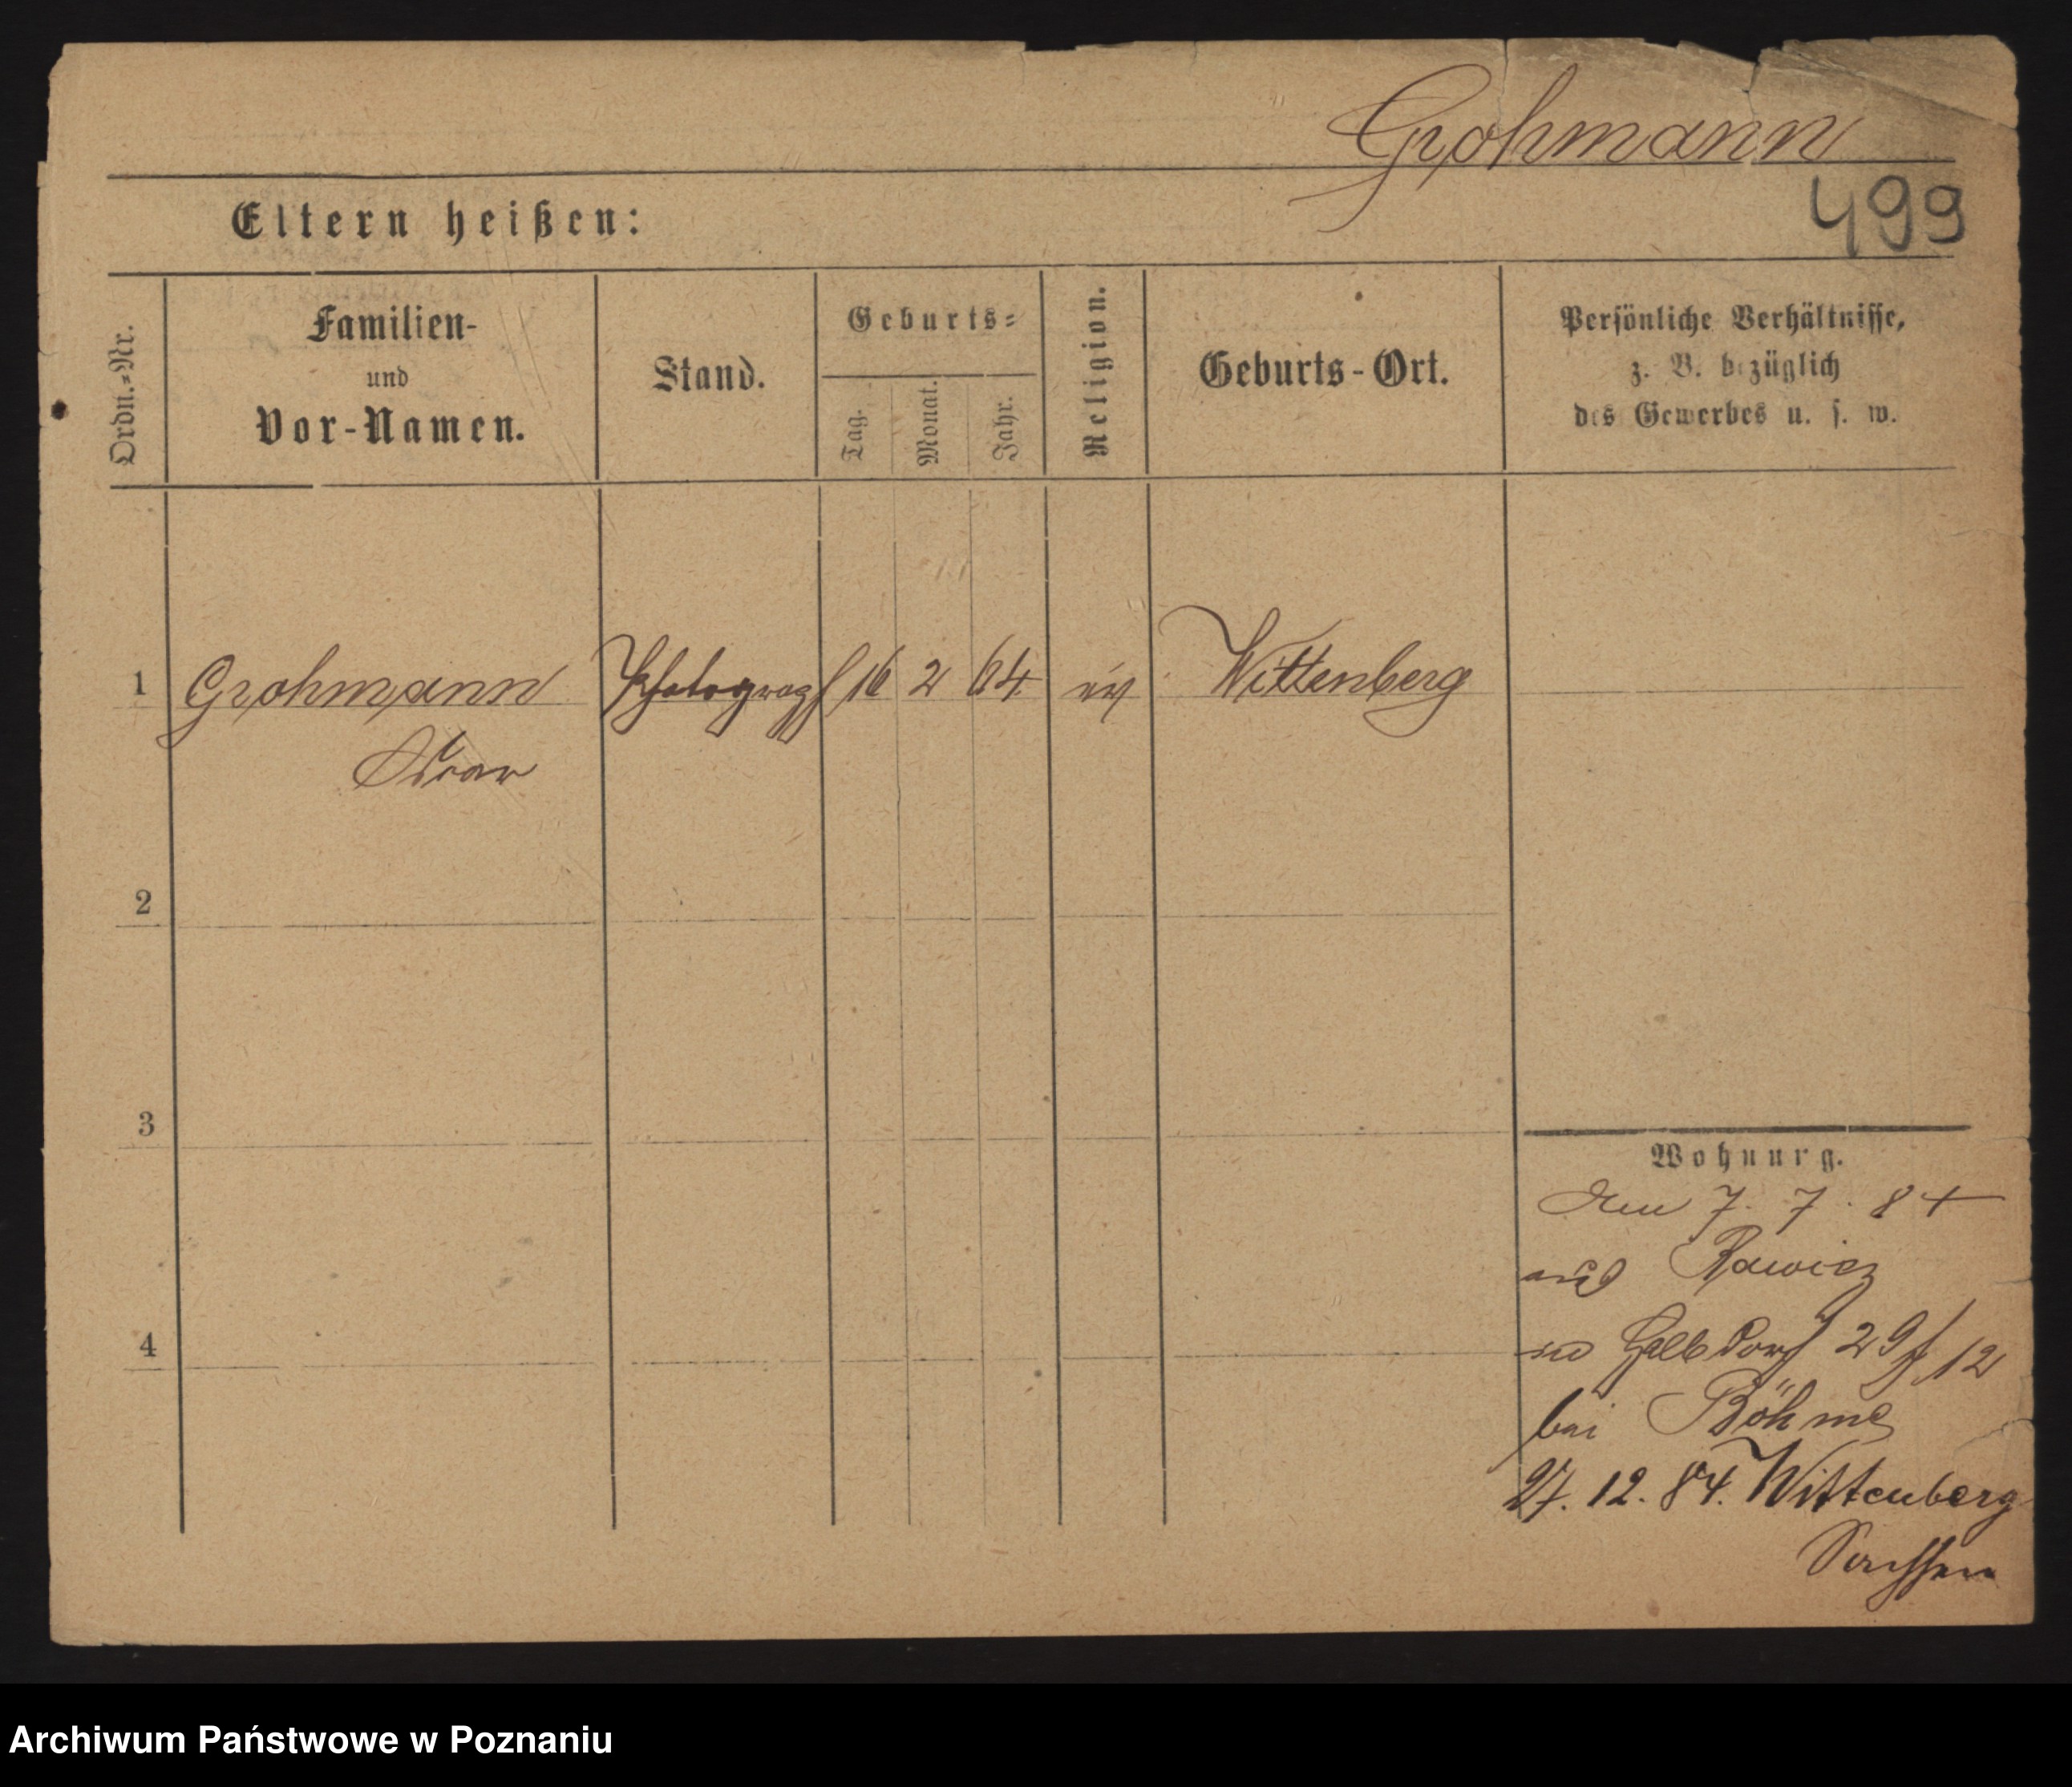 Grohmann
499
Eltern heißen:
Ordn.=Nr.
Familien-
und
Vor-Namen.
Stand.
Geburts=
Tag.
Monat.
Jahr.
Religion.
Geburts-Ort.
Persönliche Verhältnisse,
z. B. bezüglich
des Gewerbes u. s. w.
1 Grohmann Photograph 16 2 64 ev Wittenberg
2
3
4
Wohnung.
Den 7. 7. 84
aus Rawicz
no Halbdorf 29/12
bei Böhme
27. 12. 84. Wittenberg
Sachsen
Archiwum Państwowe w Poznaniu